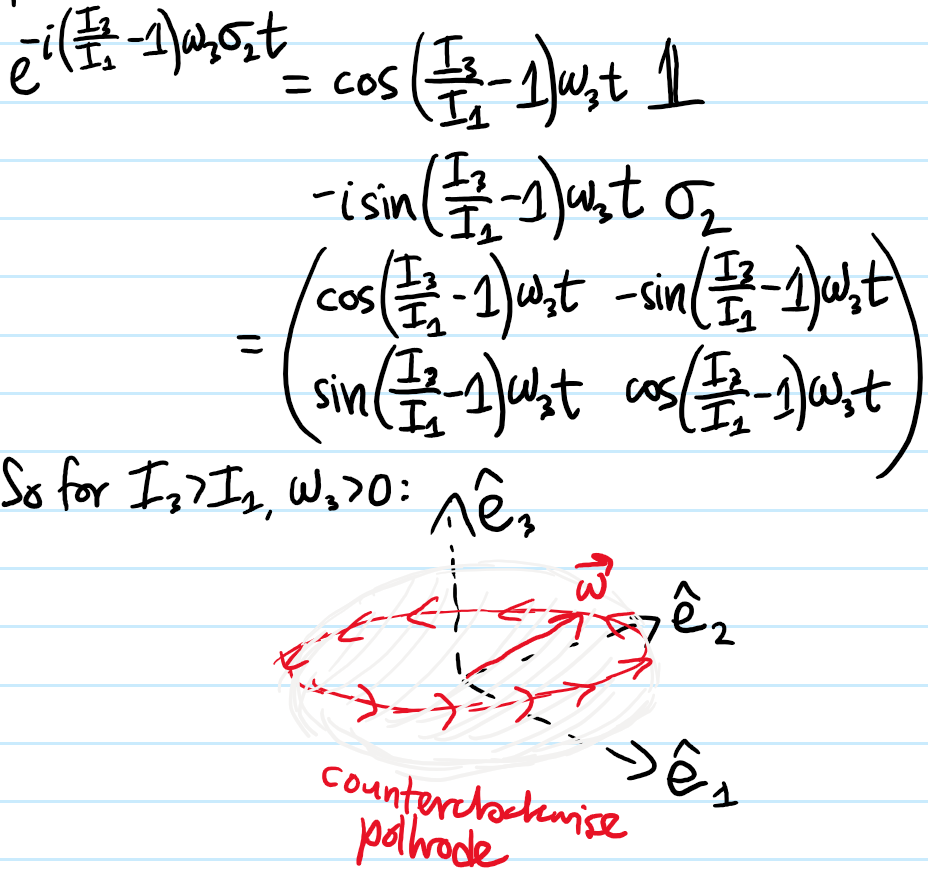 e^{-i(I₃/I₁ -1)ω₃σ₂t} = cos(I₃/I₁ -1)ω₃t 𝟙
-i sin(I₃/I₁ -1)ω₃t σ₂
= ( cos(I₃/I₁ -1)ω₃t   -sin(I₃/I₁ -1)ω₃t
sin(I₃/I₁ -1)ω₃t   cos(I₃/I₁ -1)ω₃t )
So for I₃>I₁, ω₃>0:
ê₃
ω⃗
ê₂
ê₁
counterclockwise
polhode